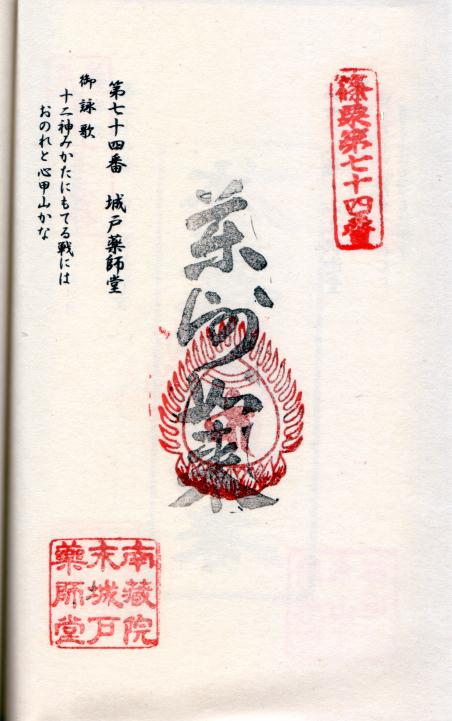 篠栗第七十四番
薬師如来
第七十四番　城戸薬師堂
御詠歌
十二神みかたにもてる戦には
おのれと心甲山かな
南蔵院
末城戸
薬師堂